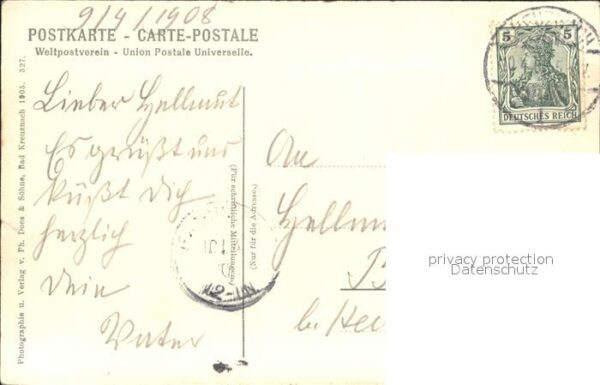 9/4/1908
POSTKARTE - CARTE-POSTALE
Weltpostverein - Union Postale Universelle.
5 5
DEUTSCHES REICH
Lieber Hellmut
Es grüßt und
küßt Dich
herzlich
Dein
Vater
(Für schriftliche Mitteilungen)
(Nur für die Adresse.)
An
Hellmu
B
b. Hei
privacy protection
Datenschutz
Photographie u. Verlag v. Ph. Does & Söhne, Bad Kreuznach 1905. 327.